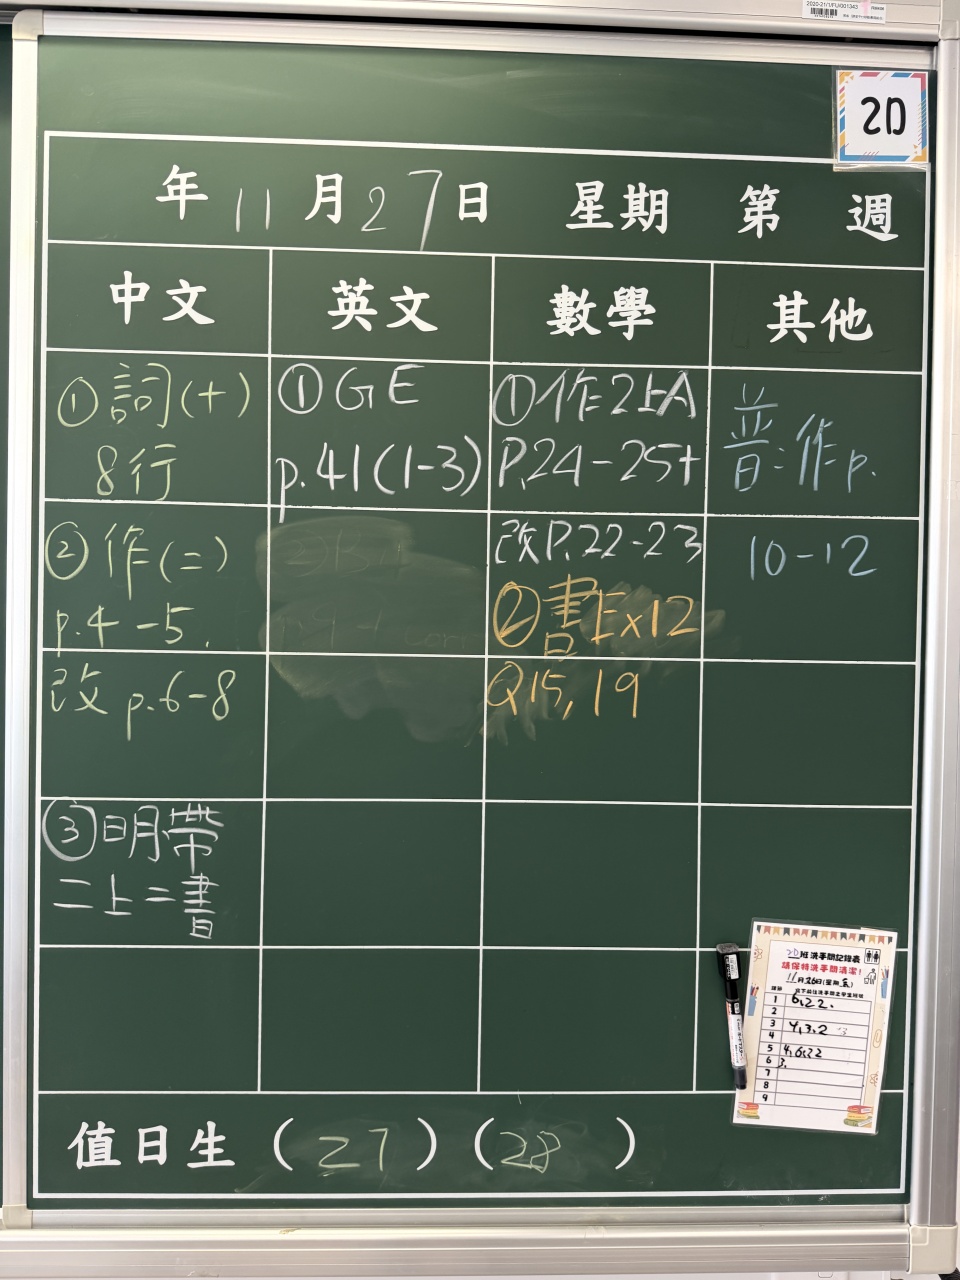 2020-21/1/FU/001343
2D
年 11 月 27 日 星期 第 週
中文 英文 數學 其他
①詞(十)
8行
②作(二)
p.4-5.
改 p.6-8
③明帶
二上二書
①GE
p.41(1-3)
①作2上A
P.24-25+
改P.22-23
②書Ex12
Q15, 19
普:作p.
10-12
2D班洗手間記錄表
請保持洗手間清潔!
11月26日(星期
1 6,22.
2
3 4,3,2
4
5 4,6,22
6 3.
7
8
9
值日生 (27)(28)